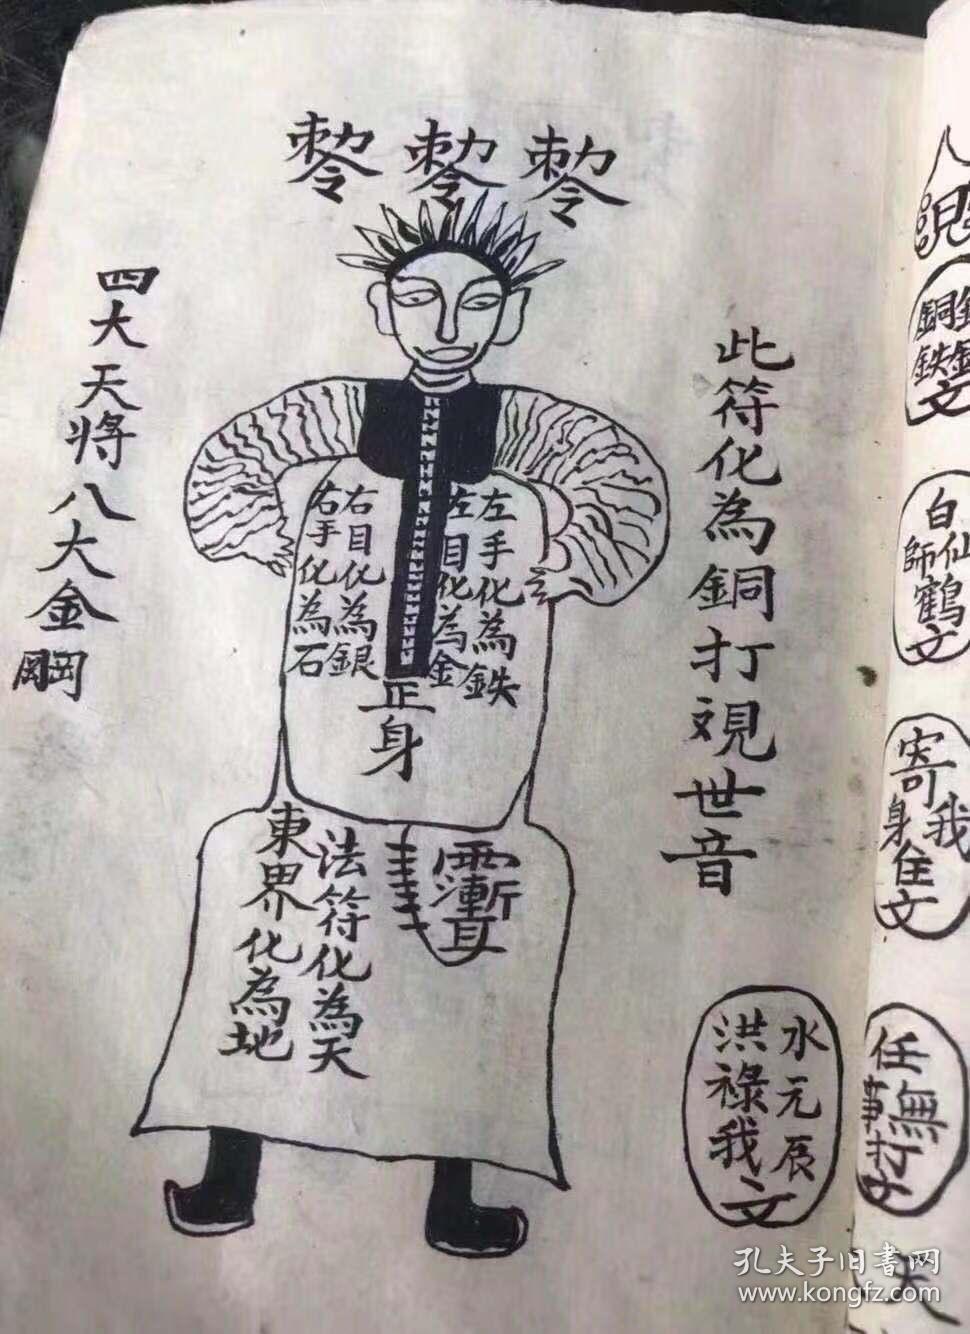 此符化為銅打覌世音
四大天將八大金剛
左手化為鉄
左目化為金
右目化為銀
右手化為石
正身
法符化為天
東界化為地
水元辰
洪祿我文
白仙
師鶴文
我
寄身住文
無
任事打
天
孔夫子旧書网
www.kongfz.com